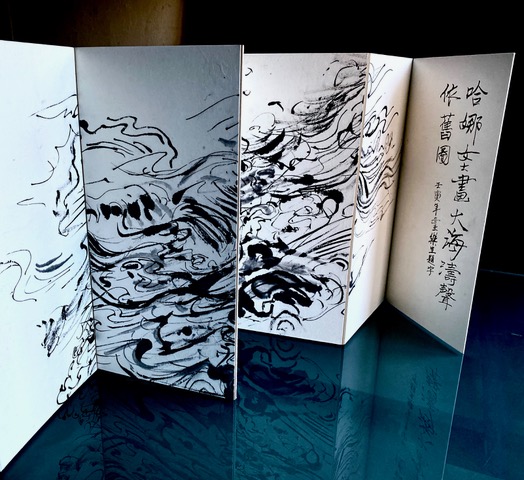 哈娜女士畫大海濤聲
依舊圖
壬寅年樂生題字